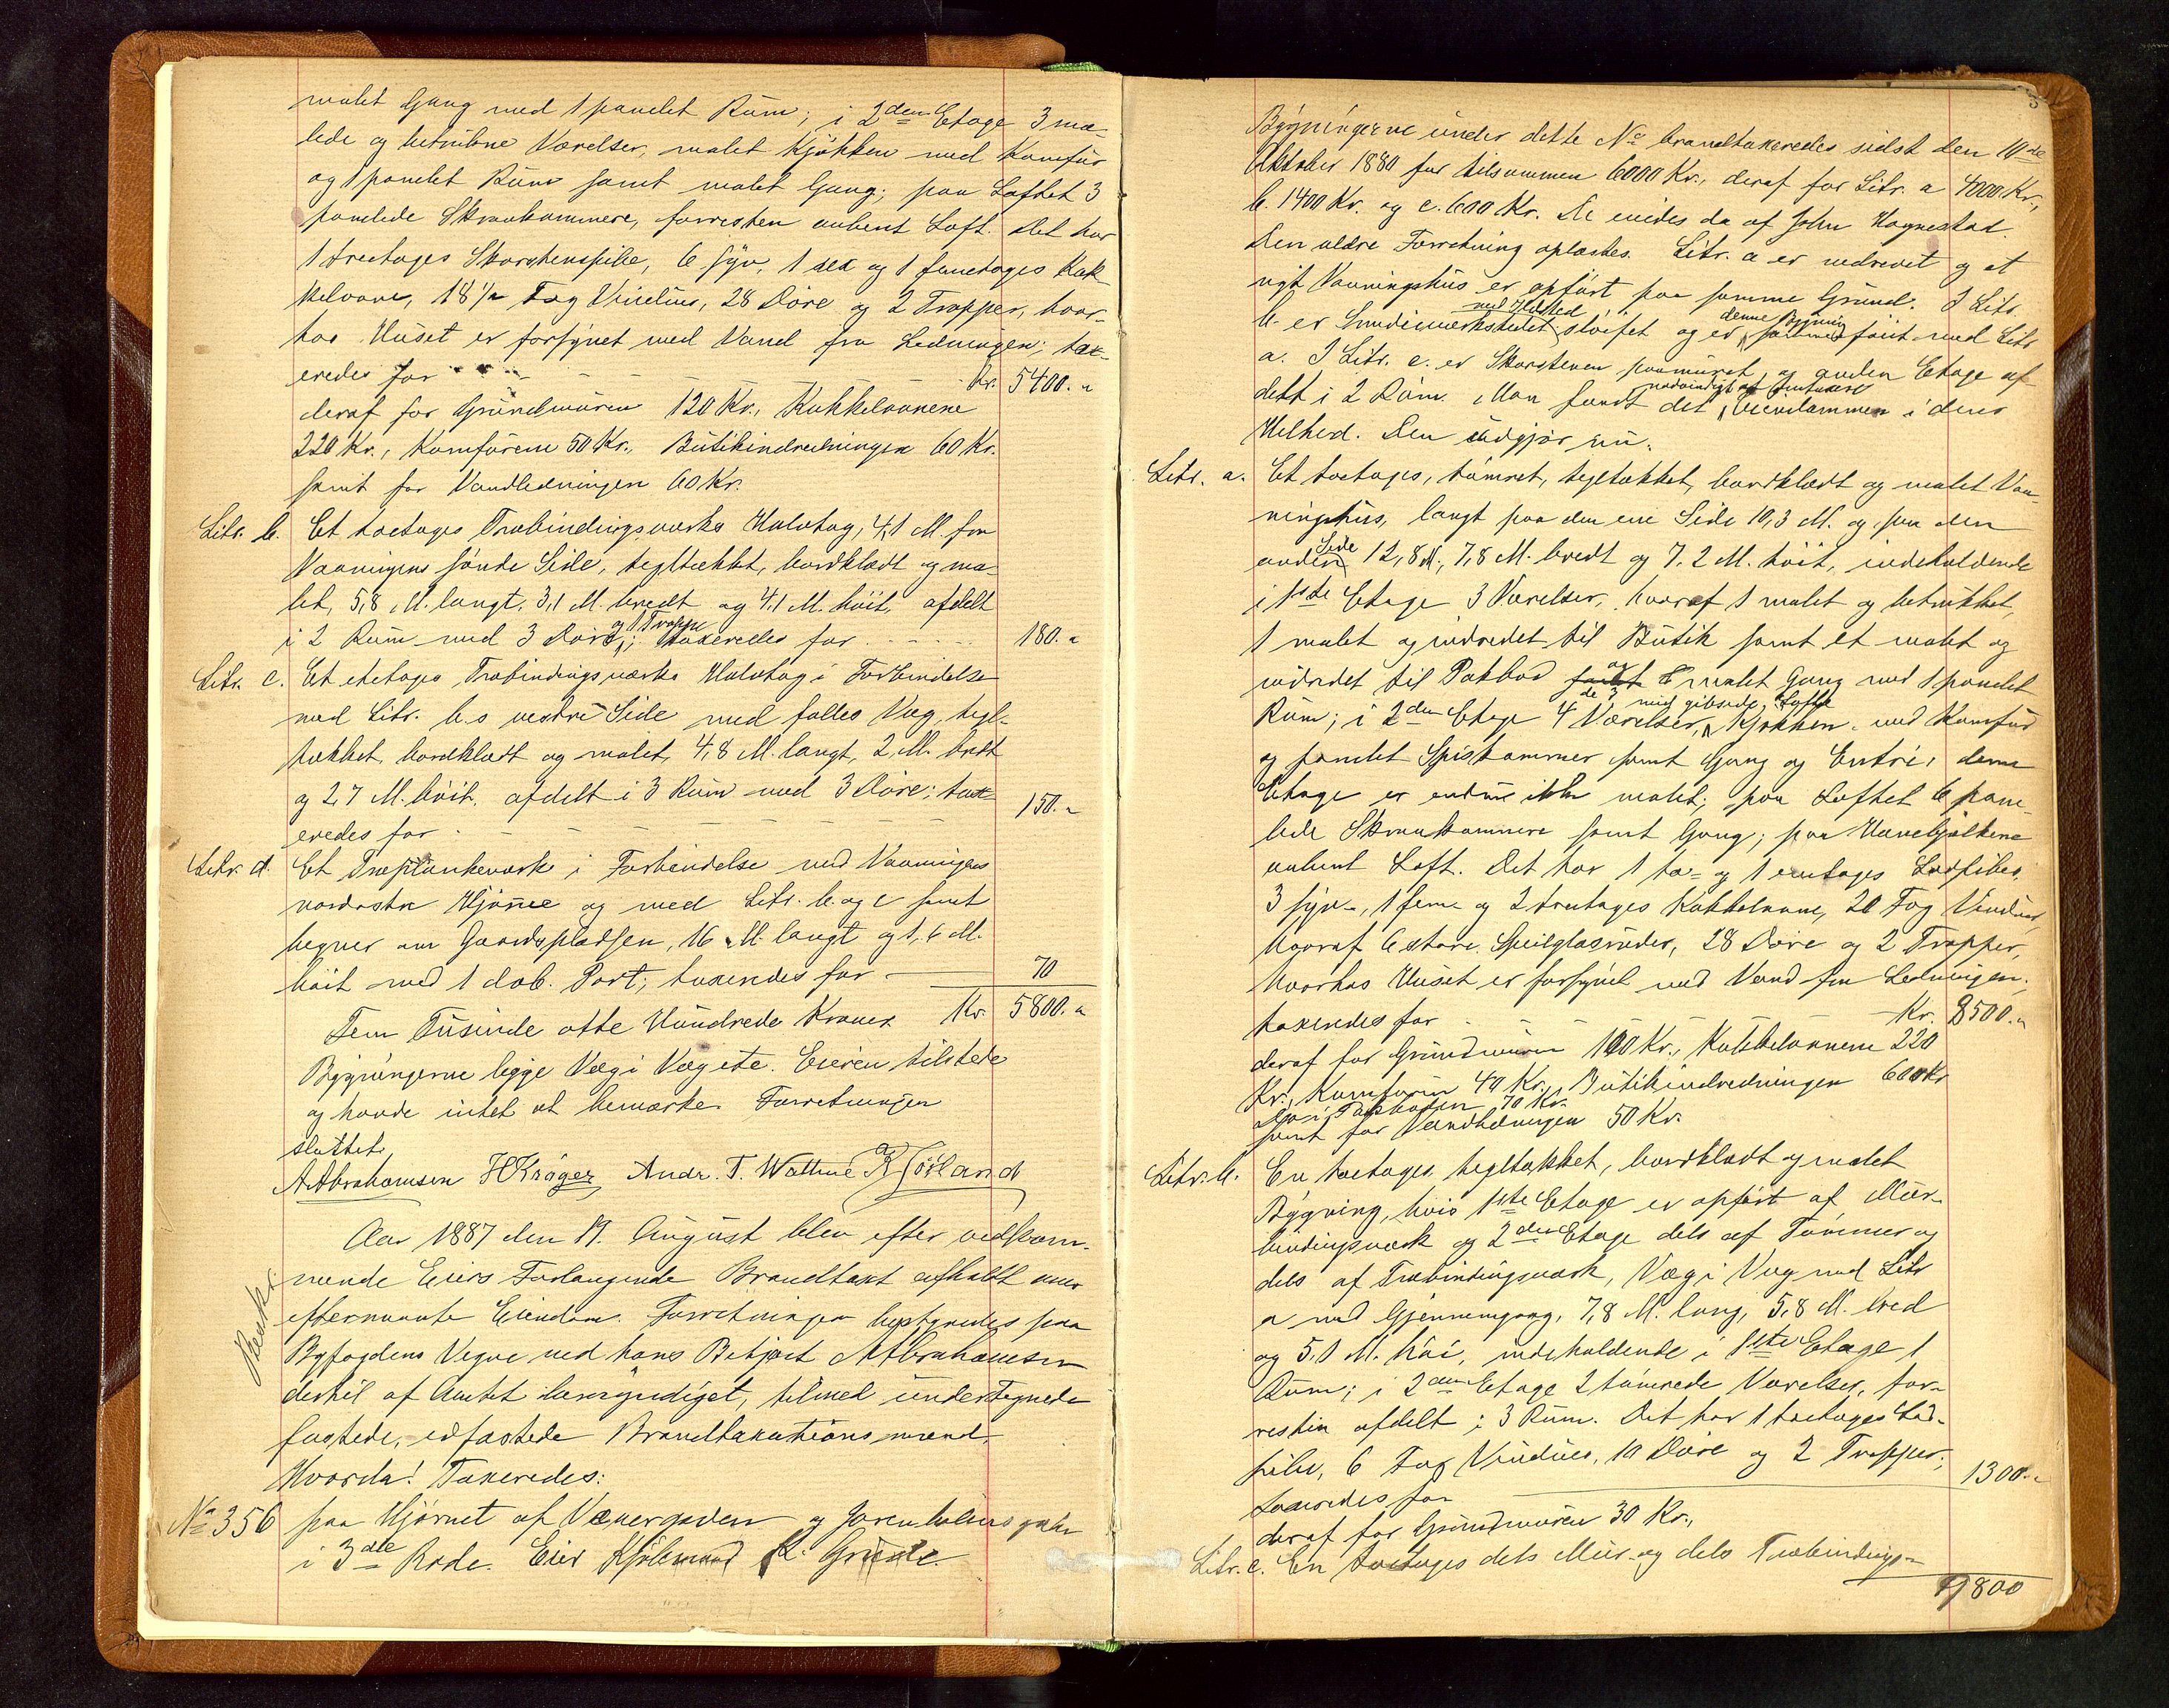 malet Gang med 1 panelet Rum; i 2den Etage 3 ma-
lede og betrukne Værelser, malet Kjøkken med Komfur
og 1 panelet Rum samt malet Gang; paa Loftet 3
panelede Skraakammere, forresten aabent Loft. Det har
1 treetages Skorstenspibe, 6 syv, 1 sex og 1 femetages Kak-
kelovne, 18 1/2 Fag Vinduer, 28 Døre og 2 Trapper, hvor-
hos Huset er forsynet med Vand fra Ledningen; tax-
eredes for - - - - - - Kr. 5400.„
deraf for Grundmuren 120 Kr., Kakkelovnene
220 Kr., Komfurene 50 Kr., Butikindredningen 60 Kr.
samt for Vandledningen 60 Kr.
Litr. b. Et toetages Træbindingsværks Halvtag, 4,1 M. fra
Vaaningens søndre Side, tegltækket, bordklædt og ma-
let, 5,8 M. langt, 3,1 M. bredt og 4,1 M. høit, afdelt
og 1 Trappe
i 2 Rum med 3 Døre; taxeredes for - - - 180.„
Litr. c. Et etetages Træbindingsværks Halvtag i Forbindelse
med Litr. b.s vestre Side med fælles Væg, tegl-
tækket, bordklædt og malet, 4,8 M. langt, 2 M. bredt
og 2,7 M. høit, afdelt i 3 Rum med 3 Døre; tax-
eredes for - - - - - - 150.„
Litr. d. Et Træplankeværk i Forbindelse med Vaaningens
nordøstre Hjørne og med Litr. b. og c samt
hegner om Gaardspladsen, 16 M. langt og 1,6 M.
høit med 1 dob. Port; taxeredes for - 70
Fem Tusinde otte Hundrede Kroner Kr. 5800.„
Bygningerne ligge Væg i Væg etc. Eieren tilstede
og havde intet at bemærke. Forretningen
sluttet.
A. Abrahamsen H Krøger Andr. T. Wattne R Sørland
Aar 1887 den 19. August blev efter vedkom-
mende Eiers Forlangende Brandtaxt afholdt over
efternævnte Eiendom. Forretningen bestyredes paa
Byfogdens Vegne ved hans Betjent A. Abrahamsen
dertil af Amtet bemyndiget, tilmed undertegnede
fastede, edfæstede Brandtaxationsmænd.
Hvorda! Taxeredes:
No 356 paa Hjørnet af Vævergaden og Jorenholmsgaden
i 3die Rode. Eier Kjøbmand K. Grude
Bygningerne under dette No brandtaxeredes sidst den 10de
Oktober 1880 for tilsammen 6000 Kr., deraf for Litr. a 4000 Kr.,
b. 1400 Kr. og c. 600 Kr. De eiedes da af John Hognestad.
Den ældre Forretning oplæstes. Litr. a er nedrevet og et
nyt Vaaningshus er opført paa samme Grund. I Litr.
med Ildsted denne Bygning
b. er Smedieværkstedet sløifet og er sammenføiet med Litr
a. I Litr. c. er Skorstenen paamuret og anden Etage af-
nødvendigt at omtaxere
delt i 2 Rum. Man fandt det Eiendommen i dens
Helhed. Den udgjør nu:
Litr. a. Et toetages, tømret, tegltækket, bordklædt og malet Vaa-
ningshus, langt paa den ene Side 10,3 M. og paa den
Side
anden 12,8 M., 7,8 M. bredt og 7,2 M. høit, indeholdende
i 1ste Etage 3 Værelser, hvoraf 1 malet og betrukket,
1 malet og indredet til Butik samt et malet og
indredet til Pakbod og malet Gang med 1 panelet
de 3 med gibsede Lofte
Rum; i 2den Etage 4 Værelser, Kjøkken med Komfur
og panelet Spiskammer samt Gang og Entré; denne
Etage er endnu ikke malet; paa Loftet 6 pane-
lede Skraakammere samt Gang; paa Hanebjelkene
aabent Loft. Det har 1 to- og 1 enetages Ladpiber,
3 syv-, 1 fem- og 2 treetages Kakkelovne, 20 Fag Vinduer,
hvoraf 6 store Speilglasruder, 28 Døre og 2 Trapper,
hvorhos Huset er forsynet med Vand fra Ledningen,
taxeredes for - - - - - Kr. 8500.„
deraf for Grundmuren 100 Kr., Kakkelovnene 220
Kr., Komfuren 40 Kr., Butikindredningen 600 Kr
Do i Pakboden 70 Kr.
samt for Vandledningen 50 Kr.
Litr. b. En toetages, tegltækket, bordklædt og malet
Bygning, hvis 1ste Etage er opført af Mur-
bindingsværk og 2den Etage dels af Tømmer og
dels af Træbindingsværk, Væg i Væg med Litr
a med Gjennemgang, 7,8 M. lang, 5,8 M. bred
og 5,1 M. høi, indeholdende i 1ste Etage 1
Rum; i 2den Etage 2 tømrede Værelser, for-
resten afdelt i 3 Rum. Det har 1 toetages Lad-
pibe, 6 Fag Vinduer, 10 Døre og 2 Trapper;
taxeredes for 1300.„
deraf for Grundmuren 30 Kr.,
Litr. c. En toetages dels Mur- og dels Træbindings-
9800